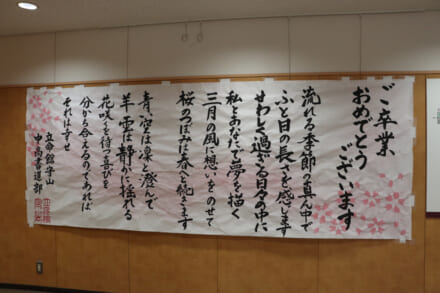 ご卒業
おめでとう
ございます
流れる季節の真ん中で
ふと日の長さを感じます
せわしく過ぎる日々の中に
私とあなたで夢を描く
三月の風に想いをのせて
桜のつぼみは春へと続きます
青空は凛と澄んで
羊雲は静かに揺れる
花咲くを待つ喜びを
分かち合えるのであれば
それは幸せ
立命館守山
中・高書道部